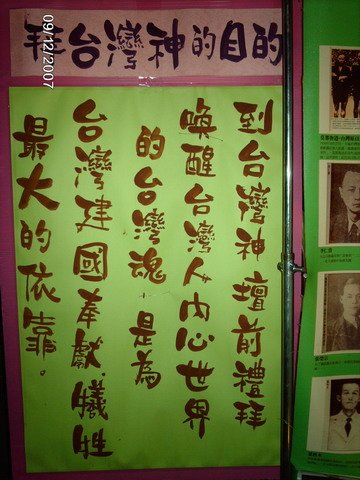 拜台灣神的目的
到台灣神壇前禮拜
喚醒台灣人內心世界
的台灣魂.是為
台灣建國奉獻.犧牲
最大的依靠。
09/12/2007